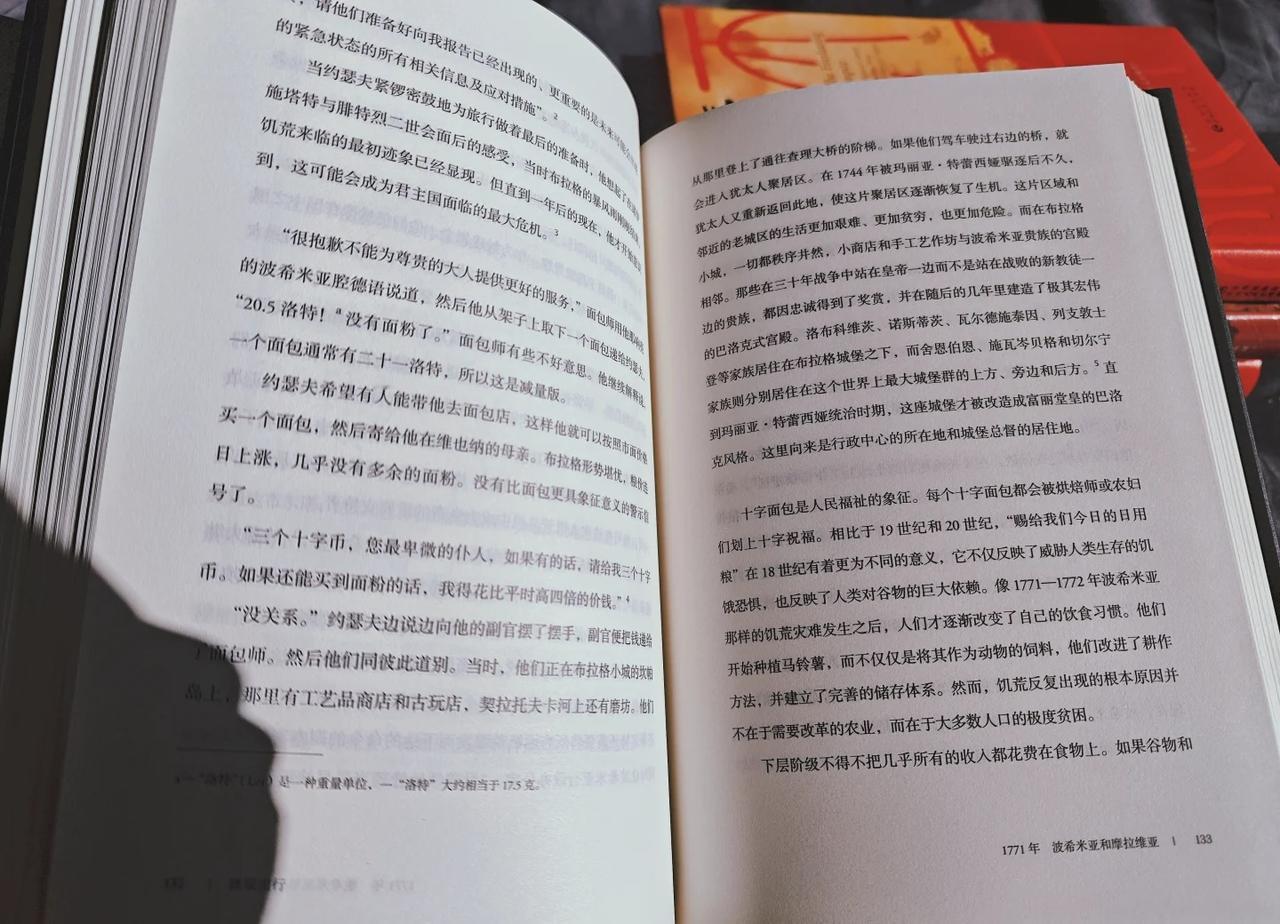 请他们准备好向我报告已经出现的、更重要的是未来可能
的紧急状态的所有相关信息及应对措施”。2
当约瑟夫紧锣密鼓地为旅行做着最后的准备时，他想起了在
施塔特与腓特烈二世会面后的感受，当时布拉格的暴风雨刚刚
饥荒来临的最初迹象已经显现。但直到一年后的现在，他才开始意识
到，这可能会成为君主国面临的最大危机。3
“很抱歉不能为尊贵的大人提供更好的服务，”面包师用他那
的波希米亚腔德语说道，然后他从架子上取下一个面包递给约瑟夫，
“20.5 洛特！a 没有面粉了。”面包师有些不好意思。他继续解释说，
一个面包通常有二十一洛特，所以这是减量版。
约瑟夫希望有人能带他去面包店，这样他就可以按照市面价格
买一个面包，然后寄给他在维也纳的母亲。布拉格形势堪忧，粮价连
日上涨，几乎没有多余的面粉。没有比面包更具象征意义的警示信
号了。
“三个十字币，您最卑微的仆人，如果有的话，请给我三个十字
币。如果还能买到面粉的话，我得花比平时高四倍的价钱。”4
“没关系。”约瑟夫边说边向他的副官摆了摆手，副官便把钱递给
了面包师。然后他们同彼此道别。当时，他们正在布拉格小城的坎帕
岛上，那里有工艺品商店和古玩店，契拉托夫卡河上还有磨坊。他们
a “洛特”（Lot）是一种重量单位，一“洛特”大约相当于 17.5 克。
132
从那里登上了通往查理大桥的阶梯。如果他们驾车驶过右边的桥，就
会进入犹太人聚居区。在 1744 年被玛丽亚·特蕾西娅驱逐后不久，
犹太人又重新返回此地，使这片聚居区逐渐恢复了生机。这片区域和
邻近的老城区的生活更加艰难、更加贫穷，也更加危险。而在布拉格
小城，一切都秩序井然，小商店和手工艺作坊与波希米亚贵族的宫殿
相邻。那些在三十年战争中站在皇帝一边而不是站在战败的新教徒一
边的贵族，都因忠诚得到了奖赏，并在随后的几年里建造了极其宏伟
的巴洛克式宫殿。洛布科维茨、诺斯蒂茨、瓦尔德施泰因、列支敦士
登等家族居住在布拉格城堡之下，而舍恩伯恩、施瓦岑贝格和切尔宁
家族则分别居住在这个世界上最大城堡群的上方、旁边和后方。5 直
到玛丽亚·特蕾西娅统治时期，这座城堡才被改造成富丽堂皇的巴洛
克风格。这里向来是行政中心的所在地和城堡总督的居住地。
十字面包是人民福祉的象征。每个十字面包都会被烘焙师或农妇
们划上十字祝福。相比于 19 世纪和 20 世纪，“赐给我们今日的日用
粮”在 18 世纪有着更为不同的意义，它不仅反映了威胁人类生存的饥
饿恐惧，也反映了人类对谷物的巨大依赖。像 1771—1772 年波希米亚
那样的饥荒灾难发生之后，人们才逐渐改变了自己的饮食习惯。他们
开始种植马铃薯，而不仅仅是将其作为动物的饲料，他们改进了耕作
方法，并建立了完善的储存体系。然而，饥荒反复出现的根本原因并
不在于需要改革的农业，而在于大多数人口的极度贫困。
下层阶级不得不把几乎所有的收入都花费在食物上。如果谷物和
1771 年 波希米亚和摩拉维亚 | 133